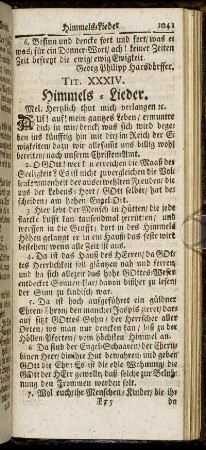 Himmels-Lieder. 1041
6. Besinn und dencke fort und fort/ was e
was/ für ein Donner-Wort/ ach! keiner Zeiten
Zeit befreyt die ewig ewig Ewigkeit.
Georg Philipp Harsdörffer.
TIT. XXXIV.
Himmels-Lieder.
Mel. Hertzlich thut mich verlangen ꝛc.
Auf! auf! mein gantzes Leben/ ermuntre
dich in mir/ denck/ was sich wird bege-
ben künfftig hin mit dir/ im Reich der E-
wigkeiten dazu wir allesamt uns billig wohl
bereiten/ nach unserm Christen-Amt.
2. O GOtt! wer kan erreichen die Maaß der
Seeligkeit? Es ist nicht zuvergleichen die Vol-
lenkommenheit der ausserwehlten Freuden/ die
uns der Lebens-Herr/ GOtt selber/ hat be-
scheiden/ am hohen Engel-Ort.
3. Hier lebt der Mensch in Hütten/ die jede
starcke Lufft kan tausendmal zerrütten/ und
werffen in die Grufft; dort in des Himmels
Höhen gelanget er in ein Hauß/ das feste wird
bestehen/ wenn alle Zeit ist aus.
4. Da ist das Hauß des HErren/ da GOt-
tes Herrlichkeit sich gläntzen nah und ferren/
und da sich allezeit das hohe GOttes-Wesen
entdecket Sonnen-klar/ davon bißher zu lesen/
der Sinn zu kindisch war.
5. Da ist hoch aufgeführet ein güldner
Ehren-Thron/ den mancher Jaspis zieret/ dar-
auf sitzt GOttes Sohn/ der Herrscher aller
Orten/ wo man nur dencken kan/ biß zu der
Höllen-Pforten/ vom höchsten Himmel an.
6. Da sind der Engel-Schaaren/ der Cheru-
binen Heer/ die ihre Hut bewahren/ und geben
GOtt die Ehr: Es ist die edle Wohnung/ die
GOtt der HErr gewelht/ daß solche zur Beloh-
nung den Frommen werden soll.
7. Wol euch/ ihr Menschen-Kinder/ die ihr
Xx 5 da